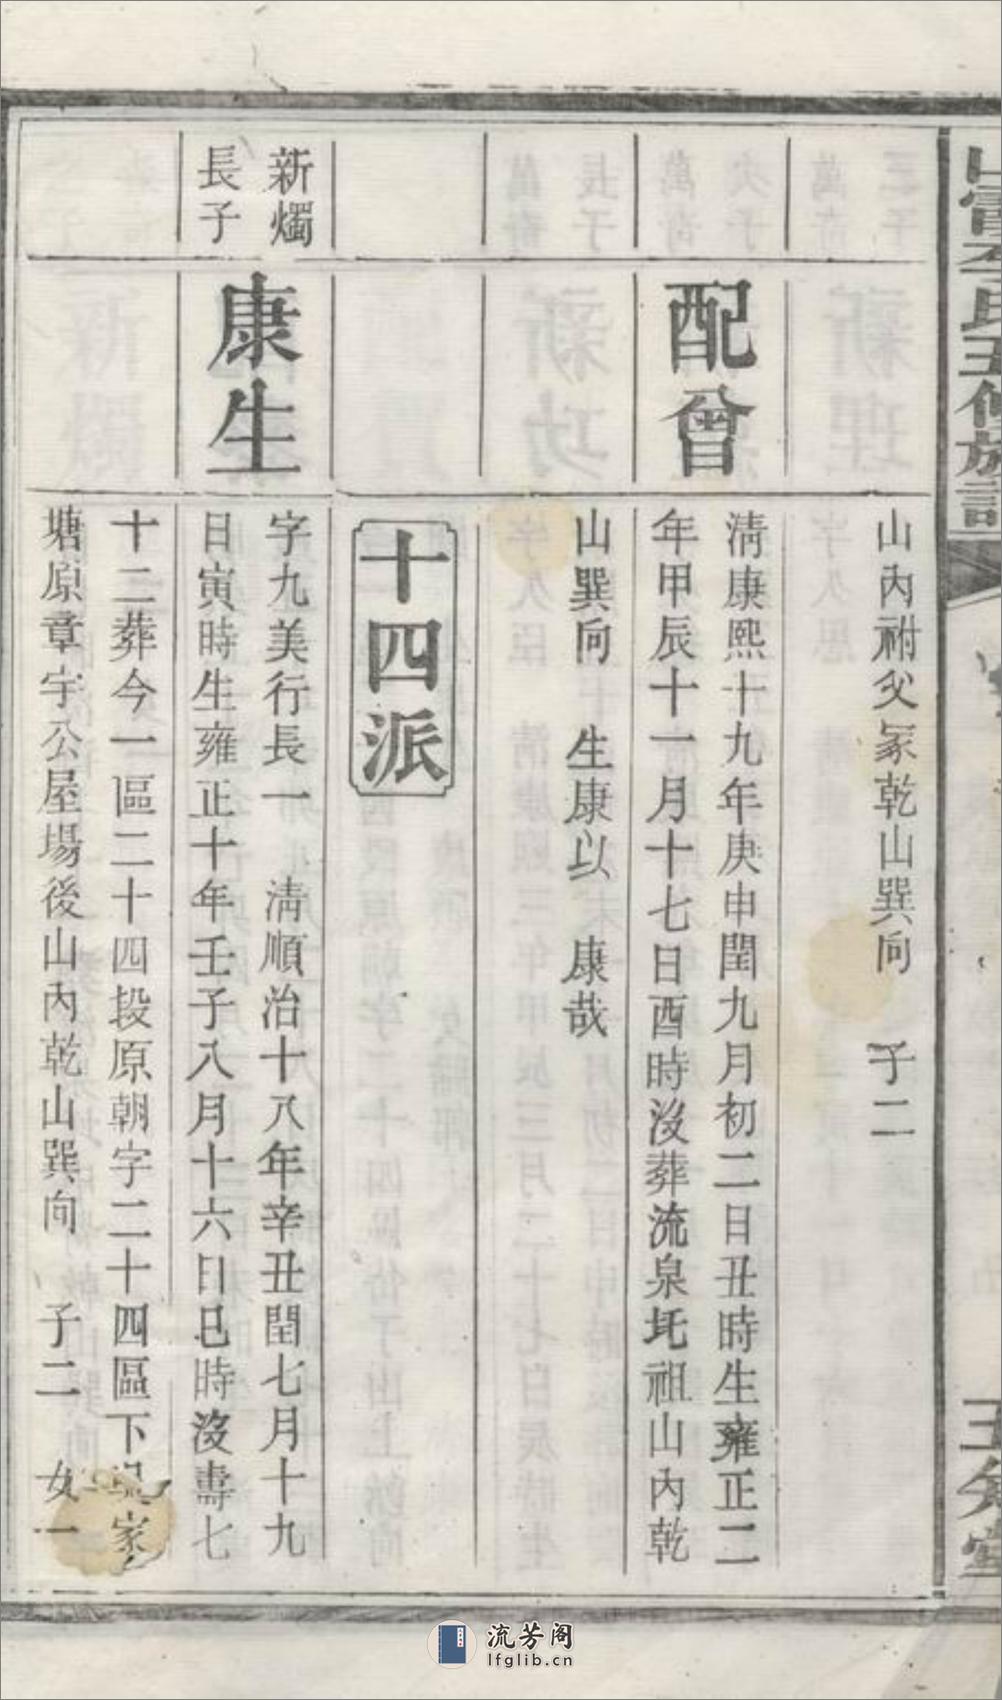 氏五修族譜
山內祔父冢乾山巽向　子二
配曾
清康熙十九年庚申閏九月初二日丑時生雍正二
年甲辰十一月十七日酉時沒葬流泉圫祖山內乾
山巽向　生康以　康哉
十四派
新燭
長子
康生
字九美行長一　清順治十八年辛丑閏七月十九
日寅時生雍正十年壬子八月十六日巳時沒壽七
十二葬今一區二十四段原朝字二十四區下家
塘原章宇公屋場後山內乾山巽向　子二　女一
流芳阁
lfglib.cn